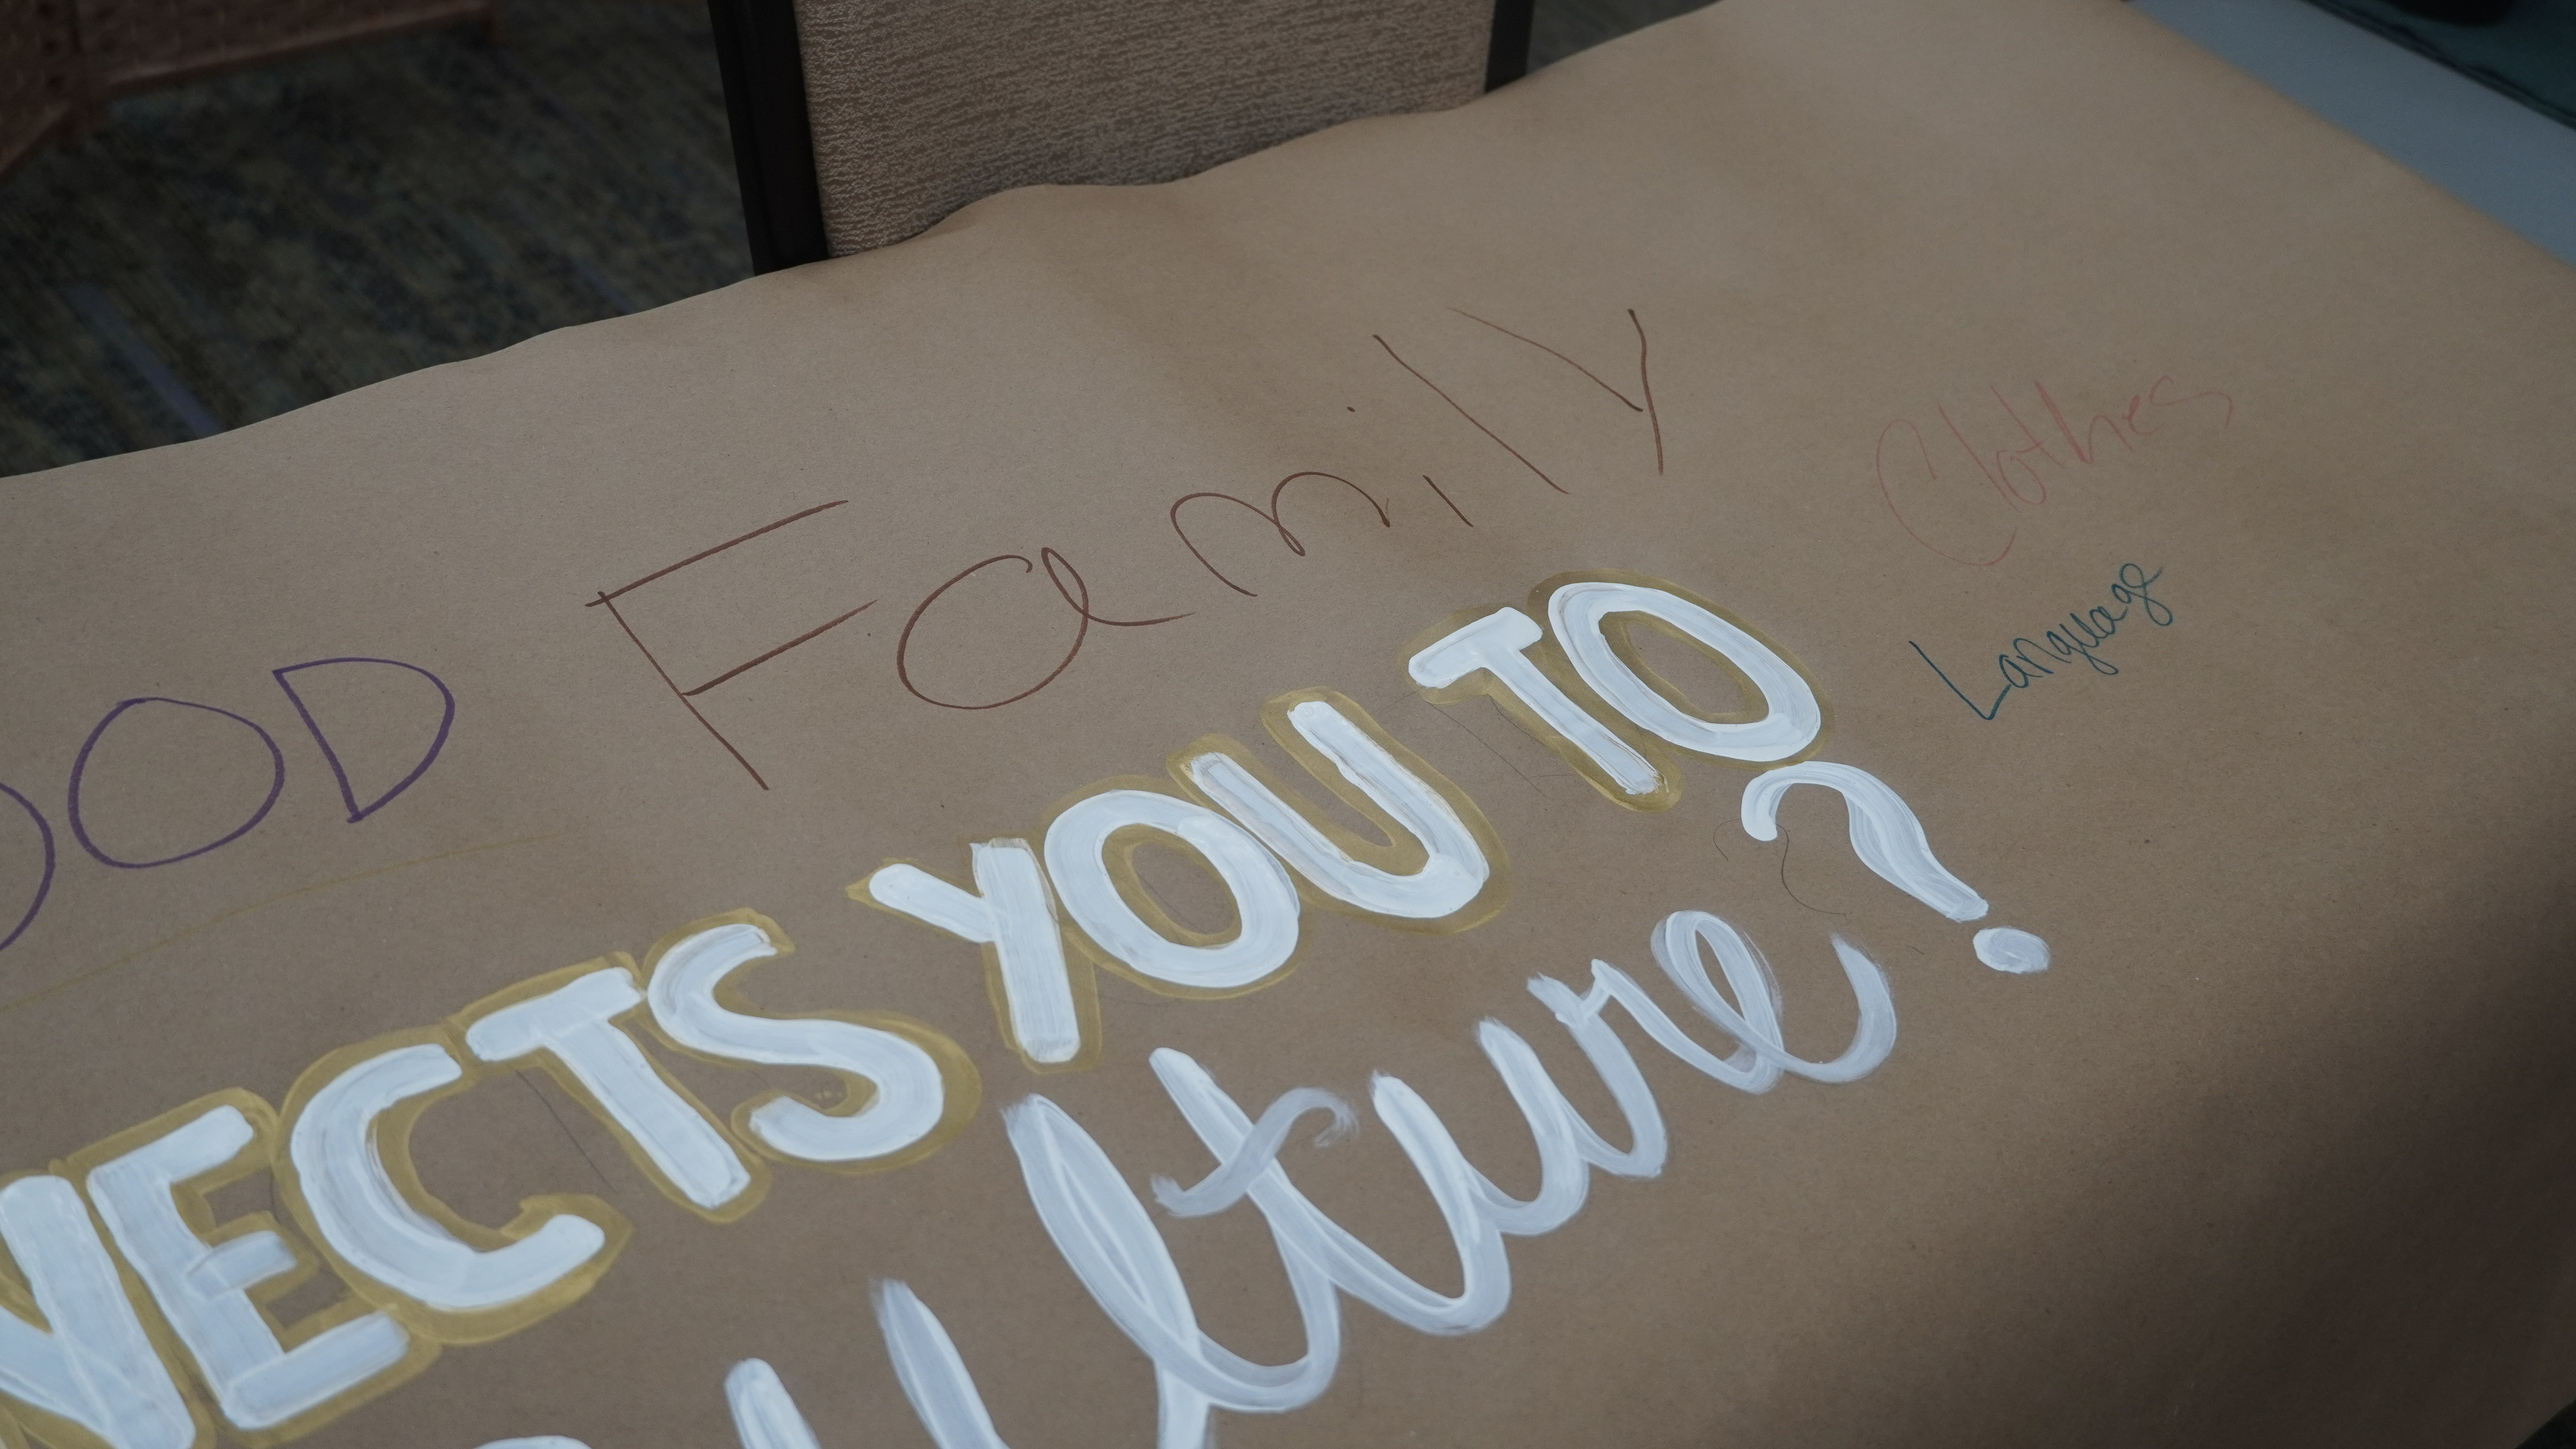 OOD
Family
Clothes
Language
NECTS YOU TO
ulture?